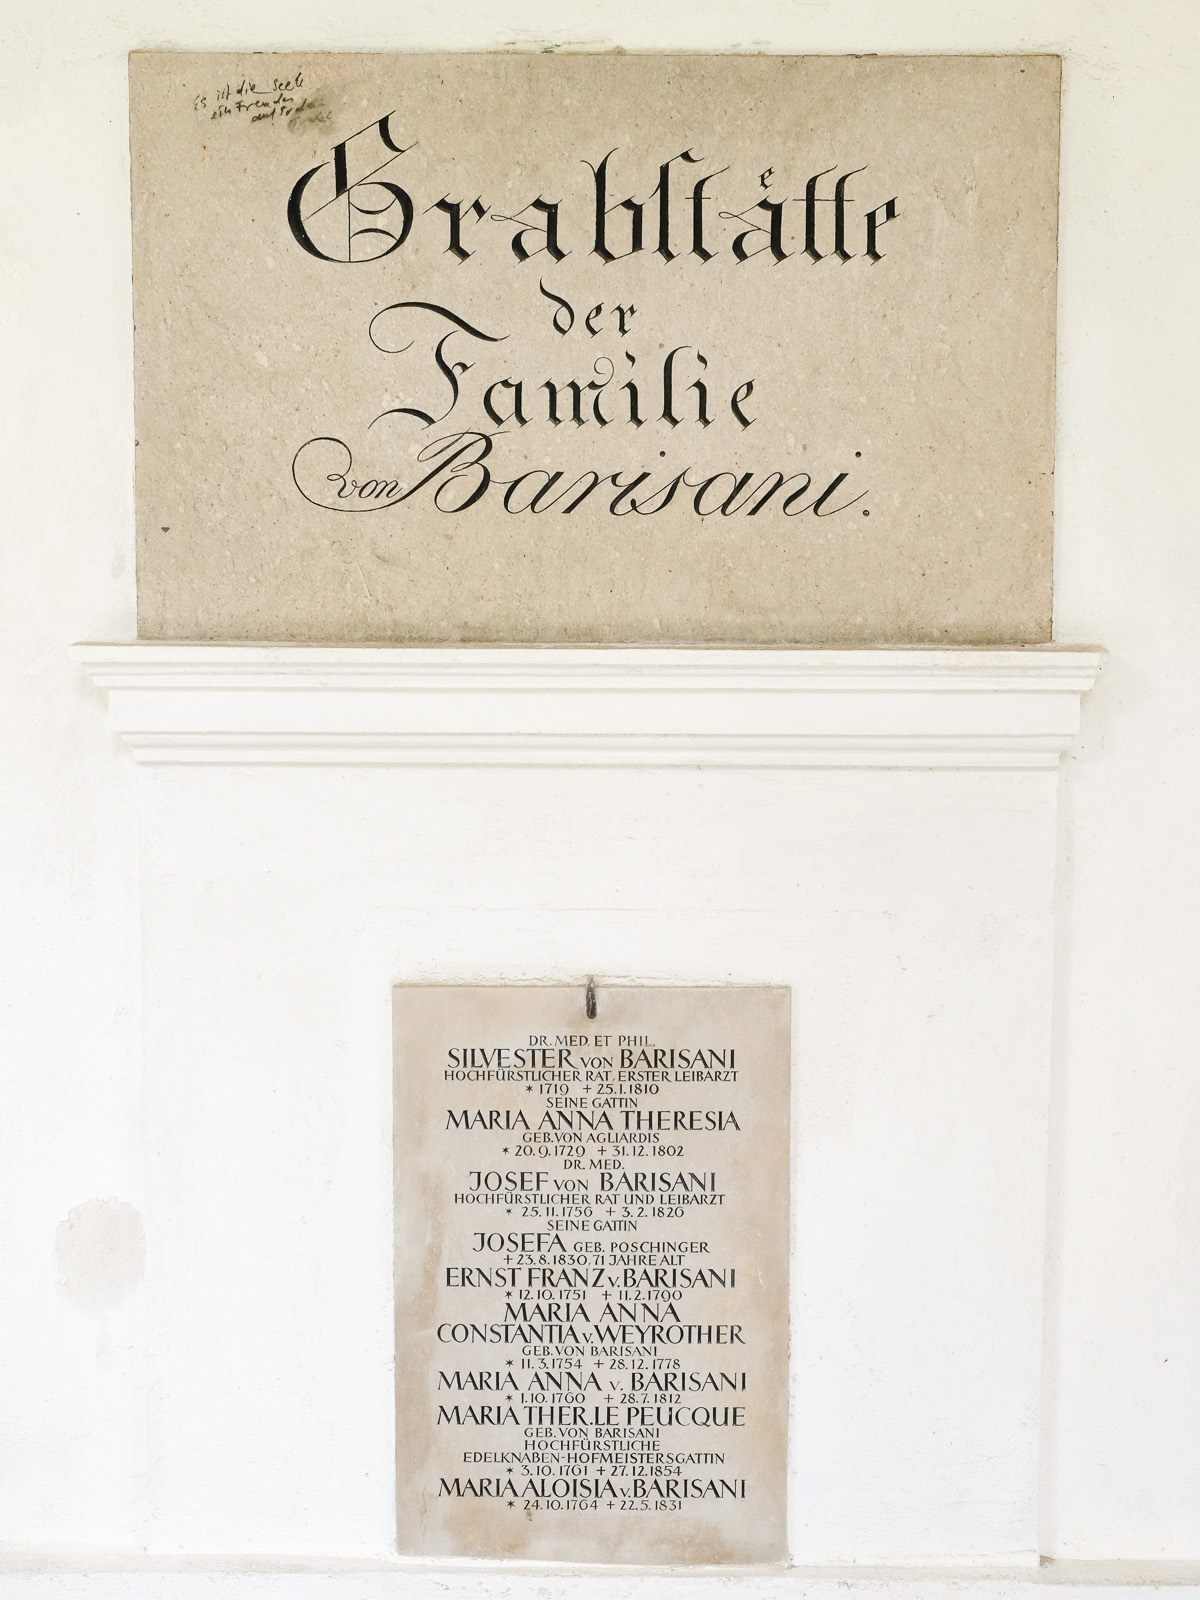 Es ist die Seele
ein Fremdes
auf Erden
Grabstaͤtte
der
Familie
von Barisani.
DR. MED. ET PHIL.
SILVESTER VON BARISANI
HOCHFÜRSTLICHER RAT, ERSTER LEIBARZT
* 1719 + 25.1.1810
SEINE GATTIN
MARIA ANNA THERESIA
GEB. VON AGLIARDIS
* 20.9.1729 + 31.12.1802
DR. MED.
JOSEF VON BARISANI
HOCHFÜRSTLICHER RAT UND LEIBARZT
* 25.11.1756 + 3.2.1826
SEINE GATTIN
JOSEFA GEB. POSCHINGER
+ 23.8.1830, 71 JAHRE ALT
ERNST FRANZ v. BARISANI
* 12.10.1751 + 11.2.1790
MARIA ANNA
CONSTANTIA v. WEYROTHER
GEB. VON BARISANI
* 11.3.1754 + 28.12.1778
MARIA ANNA v. BARISANI
* 1.10.1760 + 28.7.1812
MARIA THER. LE PEUCQUE
GEB. VON BARISANI
HOCHFÜRSTLICHE
EDELKNABEN-HOFMEISTERSGATTIN
* 3.10.1761 + 27.12.1854
MARIA ALOISIA v. BARISANI
* 24.10.1764 + 22.5.1831